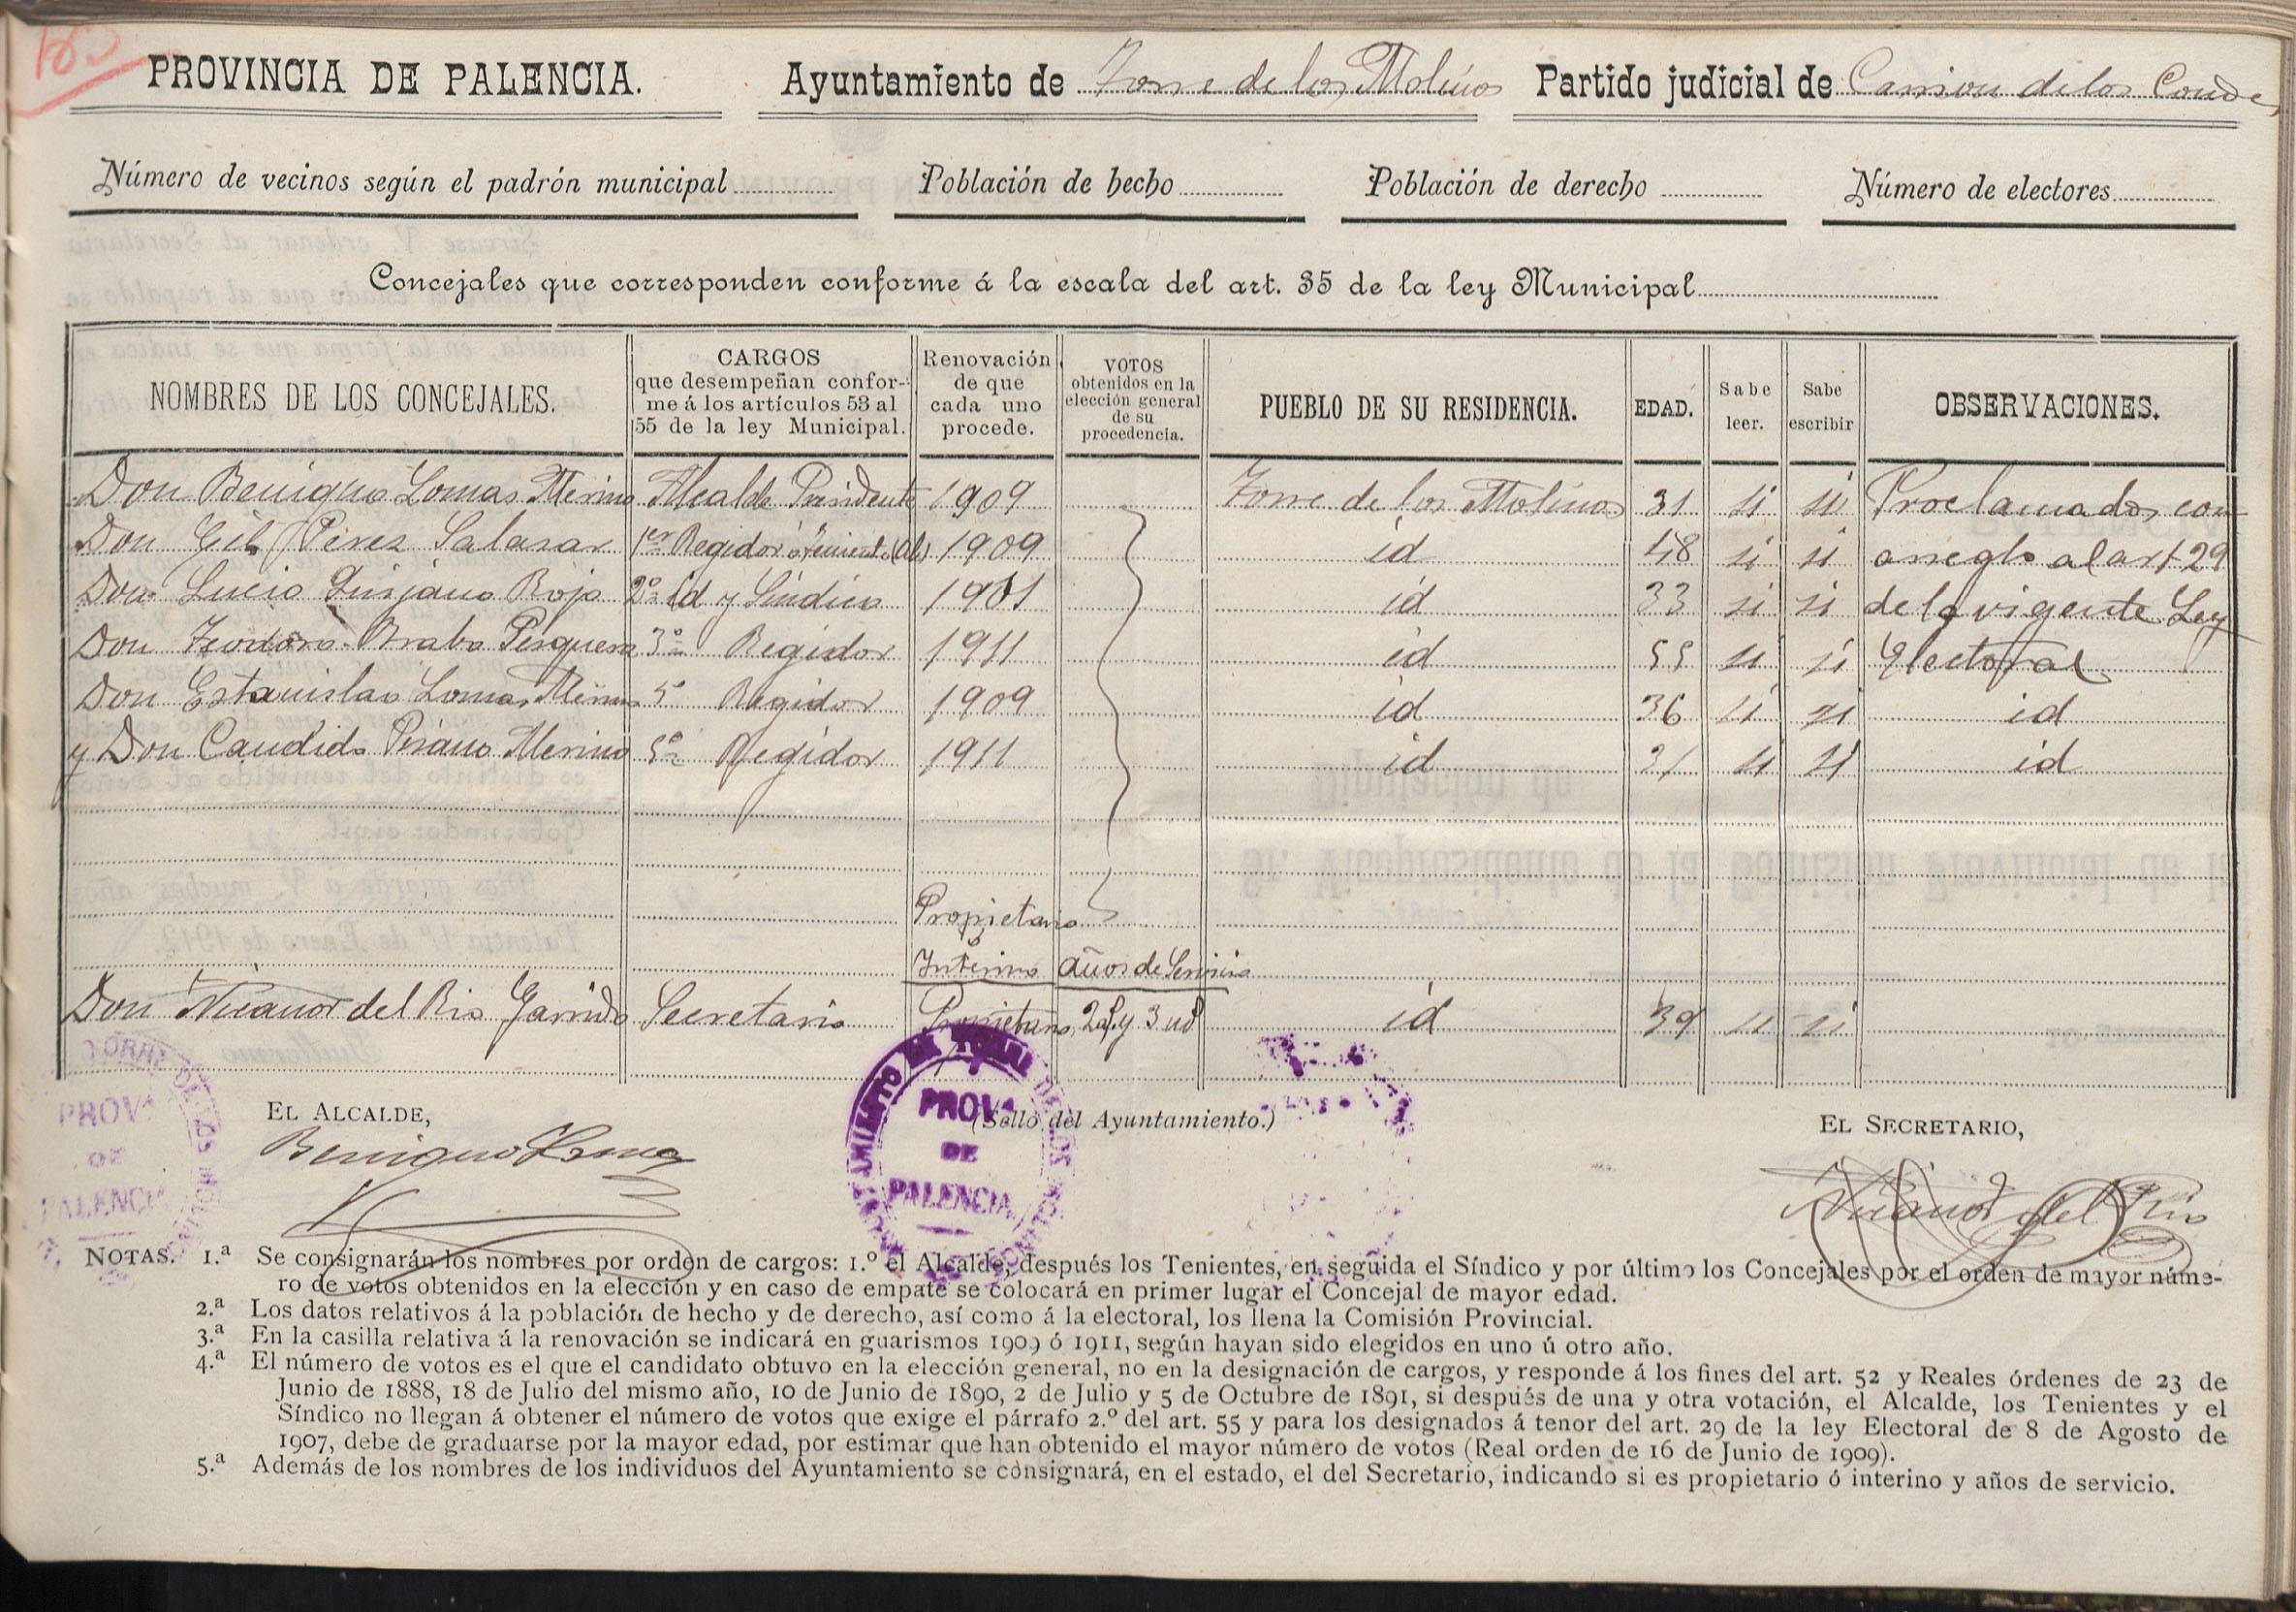 PROVINCIA DE PALENCIA. Ayuntamiento de Torre de los Molinos Partido judicial de Carrion de los Condes
Número de vecinos según el padrón municipal Población de hecho Población de derecho Número de electores
Concejales que corresponden conforme á la escala del art. 35 de la ley Municipal
NOMBRES DE LOS CONCEJALES.
CARGOS
que desempeñan confor-
me á los artículos 53 al
55 de la ley Municipal.
Renovación
de que
cada uno
procede.
VOTOS
obtenidos en la
elección general
de su
procedencia.
PUEBLO DE SU RESIDENCIA.
EDAD.
Sabe
leer.
Sabe
escribir
OBSERVACIONES.
Don Benigno Lomas Merino Alcalde Presidente 1909 Torre de los Molinos 31 si si Proclamados con
Don Gil Perez Salazar 1er Regidor ó Teniente 1909 id 48 si si arreglo al art 29
Don Lucio Quijano Rojo 2º id y Sindico 1901 id 33 si si de la vigente Ley
Don Teodoro Brabo Pesquera 3º Regidor 1911 id 55 si si Electoral
Don Estanislao Lomas Merino Regidor 1909 id 36 si si id
y Don Candido Merino 5º Regidor 1911 id 31 si si id
Propietario
Interino años de Servicio
Don Nicanor del Rio Garrido Secretario Propietario id 39 si si
EL ALCALDE,
(Sello del Ayuntamiento.)
EL SECRETARIO,
Benigno Lomas
Nicanor del Rio
PROVA
DE
PALENCIA
TORRE DE LOS
PROVA
DE
PALENCIA
NOTAS. 1.ª Se consignarán los nombres por orden de cargos: 1.º el Alcalde, después los Tenientes, en seguida el Síndico y por último los Concejales por el orden de mayor núme-
ro de votos obtenidos en la elección y en caso de empate se colocará en primer lugar el Concejal de mayor edad.
2.ª Los datos relativos á la población de hecho y de derecho, así como á la electoral, los llena la Comisión Provincial.
3.ª En la casilla relativa á la renovación se indicará en guarismos 1909 ó 1911, según hayan sido elegidos en uno ú otro año.
4.ª El número de votos es el que el candidato obtuvo en la elección general, no en la designación de cargos, y responde á los fines del art. 52 y Reales órdenes de 23 de
Junio de 1888, 18 de Julio del mismo año, 10 de Junio de 1890, 2 de Julio y 5 de Octubre de 1891, si después de una y otra votación, el Alcalde, los Tenientes y el
Síndico no llegan á obtener el número de votos que exige el párrafo 2.º del art. 55 y para los designados á tenor del art. 29 de la ley Electoral de 8 de Agosto de
1907, debe de graduarse por la mayor edad, por estimar que han obtenido el mayor número de votos (Real orden de 16 de Junio de 1909).
5.ª Además de los nombres de los individuos del Ayuntamiento se consignará, en el estado, el del Secretario, indicando si es propietario ó interino y años de servicio.